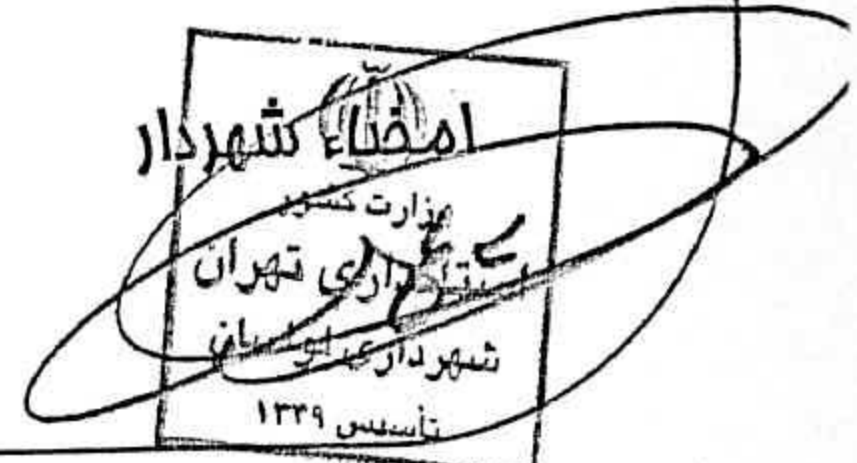 امضاء شهردار
وزارت کشور
استانداری تهران
شهرداری لواسان
تأسیس ۱۳۳۹